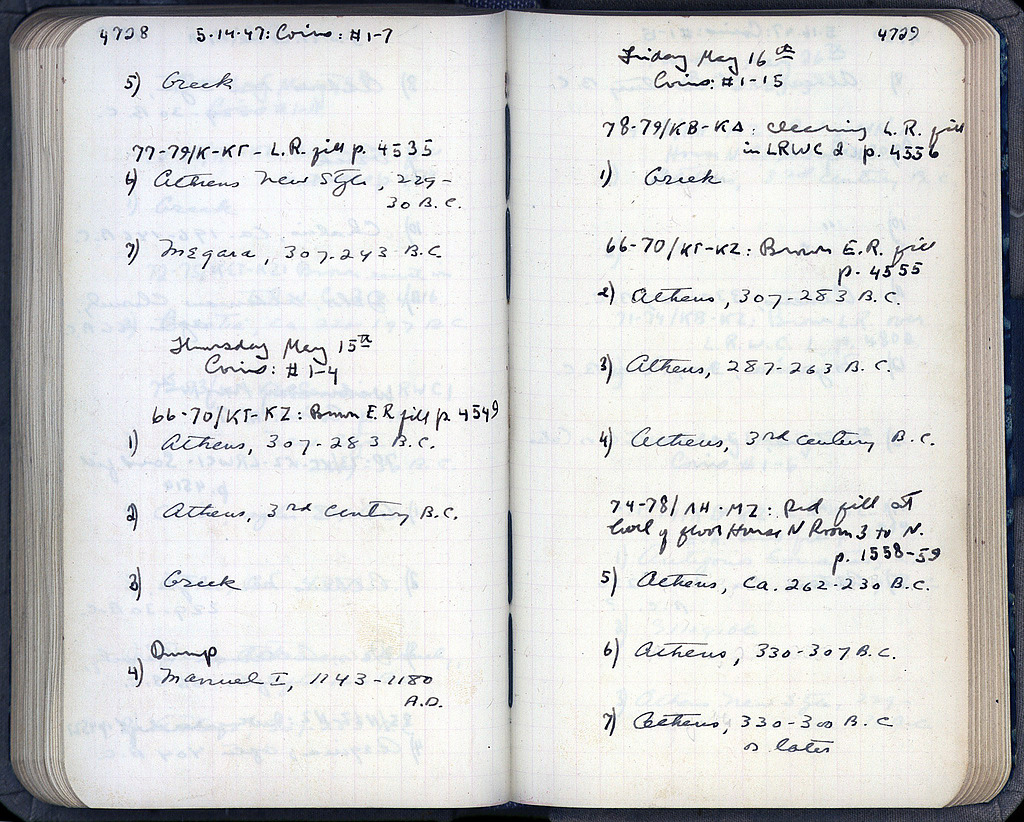 4728
5-14-47: Coins: #1-7
5) Greek
77-79/K-KΓ - L.R. fill p. 4535
6) Athens New Style, 229-
30 B.C.
7) Megara, 307-243 B.C.
Thursday May 15th
Coins: #1-4
66-70/KΓ-KZ: Brown E.R fill p. 4549
1) Athens, 307-283 B.C.
2) Athens, 3rd century B.C.
3) Greek
Dump
4) Manuel I, 1143-1180
A.D.
4729
Friday May 16th
Coins: #1-15
78-79/KB-KΔ: cleaning L.R. fill
in LRWC 2 p. 4556
1) Greek
66-70/KΓ-KZ: Brown E.R. fill
p. 4555
2) Athens, 307-283 B.C.
3) Athens, 287-263 B.C.
4) Athens, 3rd century B.C.
74-78/ΛH-MZ: Red fill at
level of floor House N Room 3 to N.
p. 1558-59
5) Athens, Ca. 262-230 B.C.
6) Athens, 330-307 B.C.
7) Athens, 330-300 B.C
or later